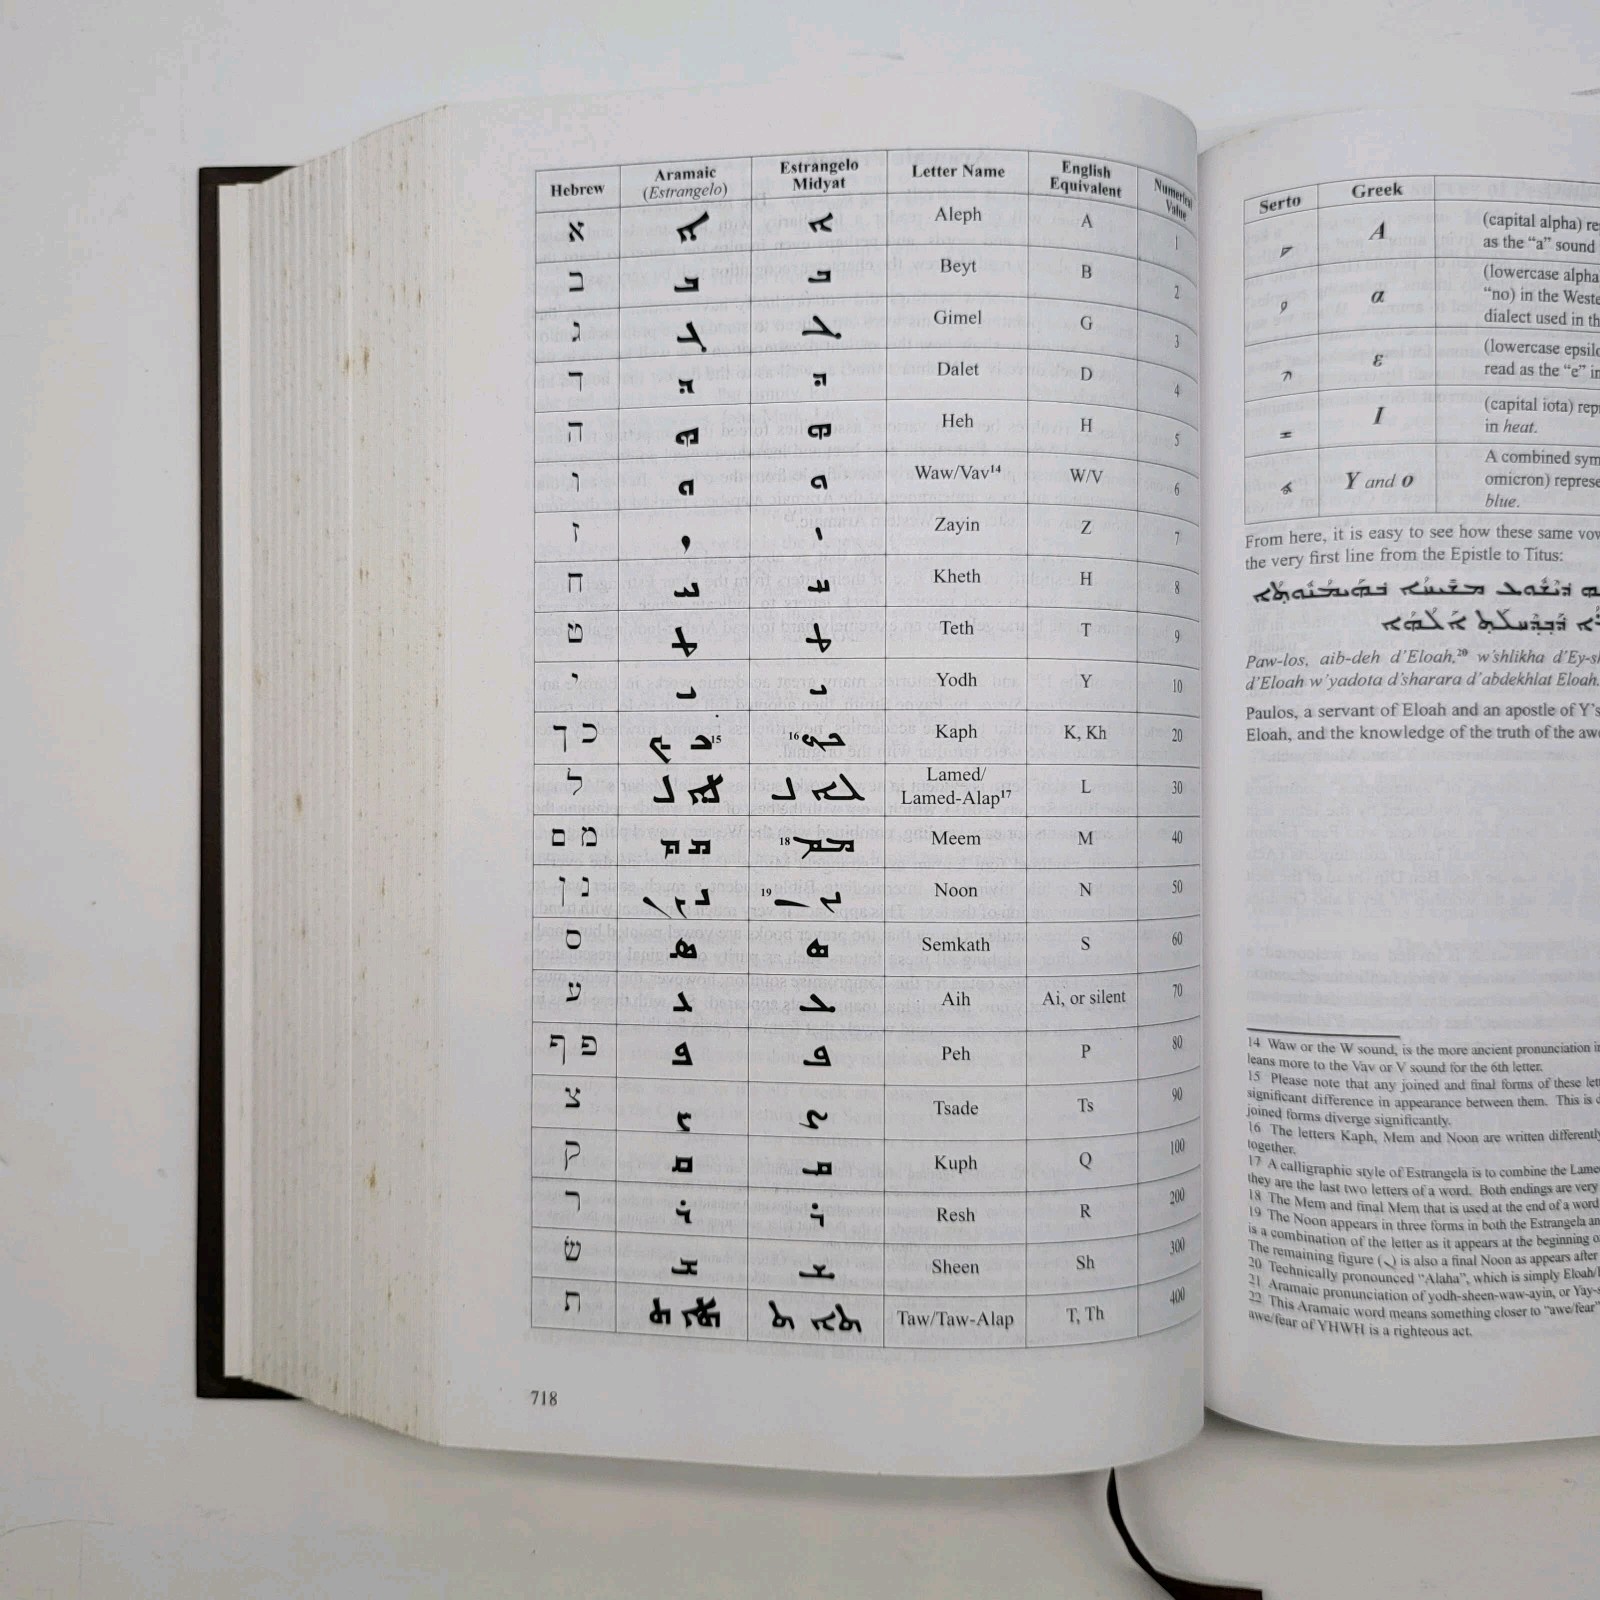 Hebrew Aramaic (Estrangelo) Estrangelo Midyat Letter Name English Equivalent Numerical Value
א ܐ ܐ Aleph A 1
ב ܒ ܒ Beyt B 2
ג ܓ ܓ Gimel G 3
ד ܕ ܕ Dalet D 4
ה ܗ ܗ Heh H 5
ו ܘ ܘ Waw/Vav¹⁴ W/V 6
ז ܙ ܙ Zayin Z 7
ח ܚ ܚ Kheth H 8
ט ܛ ܛ Teth T 9
י ܝ ܝ Yodh Y 10
כ ך ܟ ܟ ¹⁵ ¹⁶ Kaph K, Kh 20
ל ܠܐ ܠ ܠܐ ܠ Lamed/ Lamed-Alap¹⁷ L 30
מ ם ܡ ܡ ¹⁸ ܡܡ Meem M 40
נ ן ܢ ܢ ¹⁹ Noon N 50
ס ܣ ܣ Semkath S 60
ע ܥ ܥ Aih Ai, or silent 70
פ ף ܦ ܦ Peh P 80
צ ܨ ܨ Tsade Ts 90
ק ܩ ܩ Kuph Q 100
ר ܪ ܪ Resh R 200
ש ܫ ܫ Sheen Sh 300
ת ܬܐ ܬ ܬܐ ܬ Taw/Taw-Alap T, Th 400
718
Serto Greek
A (capital alpha) re
as the “a” sound
α (lowercase alpha
“no) in the Weste
dialect used in th
ε (lowercase epsilo
read as the “e” in
I (capital iota) rep
in heat.
Y and o A combined sym
omicron) represe
blue.
From here, it is easy to see how these same vow
the very first line from the Epistle to Titus:
Paw-los, aib-deh d'Eloah,²⁰ w'shlikha d'Ey-s
d'Eloah w'yadota d'sharara d'abdekhlat Eloah.
Paulos, a servant of Eloah and an apostle of Y's
Eloah, and the knowledge of the truth of the aw
14 Waw or the W sound, is the more ancient pronunciation i
leans more to the Vav or V sound for the 6th letter.
15 Please note that any joined and final forms of these let
significant difference in appearance between them. This is
joined forms diverge significantly.
16 The letters Kaph, Mem and Noon are written differently
together.
17 A calligraphic style of Estrangela is to combine the Lame
they are the last two letters of a word. Both endings are very
18 The Mem and final Mem that is used at the end of a word
19 The Noon appears in three forms in both the Estrangela an
is a combination of the letter as it appears at the beginning o
The remaining figure ( ) is also a final Noon as appears after
20 Technically pronounced “Alaha”, which is simply Eloah/
21 Aramaic pronunciation of yodh-sheen-waw-ayin, or Yay-s
22 This Aramaic word means something closer to “awe/fear”
awe/fear of YHWH is a righteous act.